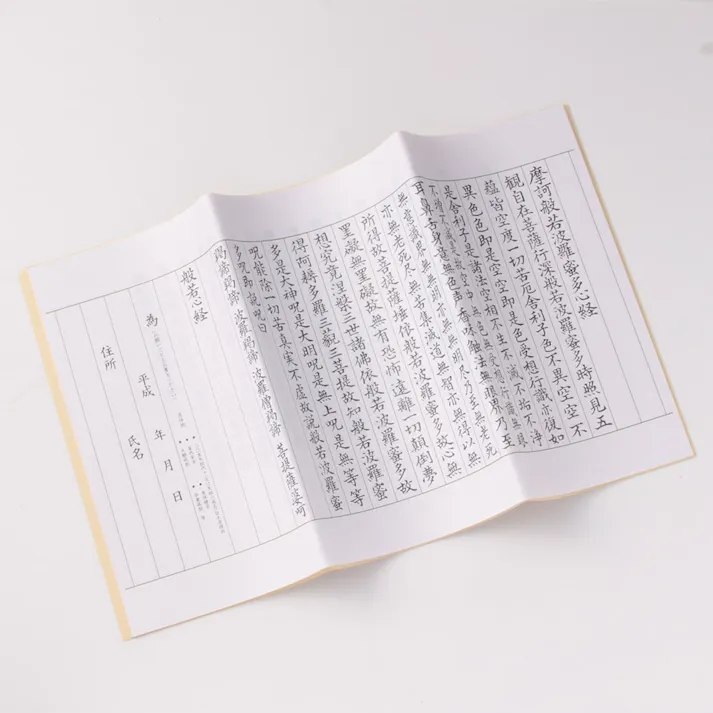 摩訶般若波羅蜜多心経
観自在菩薩行深般若波羅蜜多時照見五
蘊皆空度一切苦厄舎利子色不異空空不
異色色即是空空即是色受想行識亦復如
是舎利子是諸法空相不生不滅不垢不浄
不増不減是故空中無色無受想行識無眼
耳鼻舌身意無色声香味触法無眼界乃至
無意識界無無明亦無無明尽乃至無老死
亦無老死尽無苦集滅道無智亦無得以無
所得故菩提薩埵依般若波羅蜜多故心無
罣礙無罣礙故無有恐怖遠離一切顛倒夢
想究竟涅槃三世諸佛依般若波羅蜜多故
得阿耨多羅三藐三菩提故知般若波羅蜜
多是大神呪是大明呪是無上呪是無等等
呪能除一切苦真実不虚故説般若波羅蜜
多呪即説呪曰
羯諦羯諦 波羅羯諦 波羅僧羯諦 菩提薩婆訶
般若心経
為
平成 年 月 日
住所
氏名